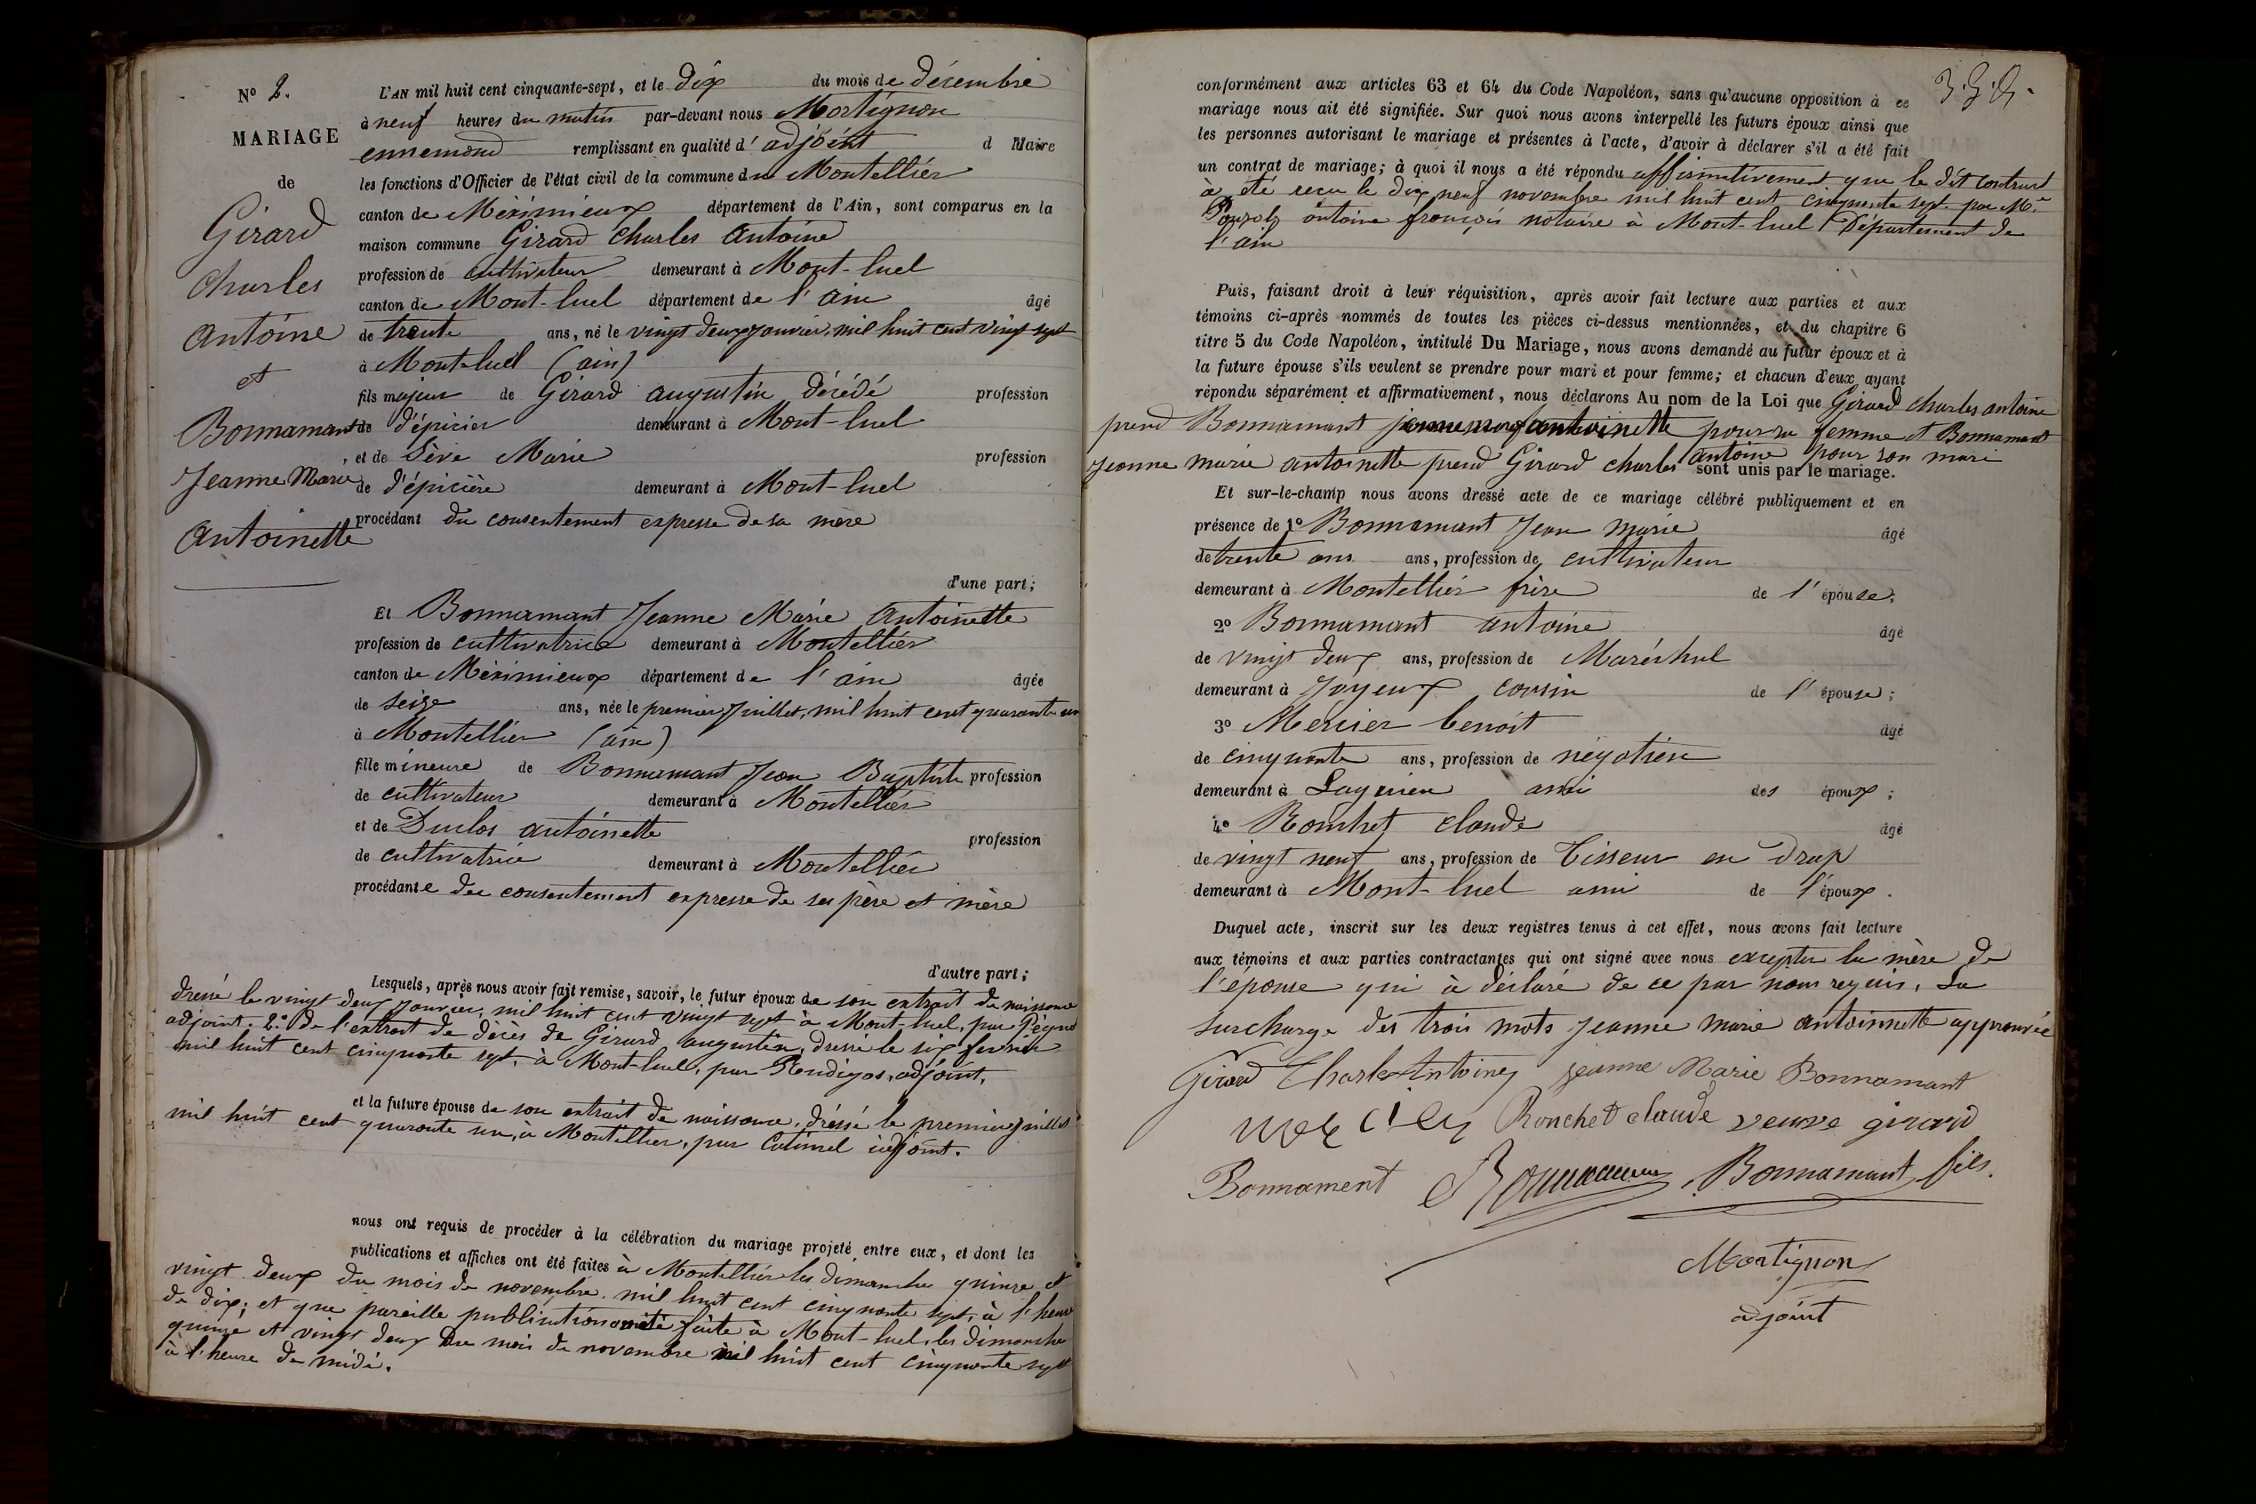 N° 2.
MARIAGE
de
Girard
Charles
Antoine
et
Bonnamant
Jeanne Marie
Antoinette
L'AN mil huit cent cinquante-sept, et le dix du mois de décembre
à neuf heures du matin par-devant nous Mortignon
ennemond remplissant en qualité d'adjoint d Maire
les fonctions d'Officier de l'état civil de la commune du Montellier
canton de Méximieux département de l'Ain, sont comparus en la
maison commune Girard Charles Antoine
profession de cultivateur demeurant à Mont-luel
canton de Mont-luel département de l'ain âgé
de trente ans, né le vingt deux Janvier, mil huit cent vingt sept
à Mont-luel (ain)
fils majeur de Girard augustin décédé profession
de d'épicier demeurant à Mont-luel
et de Sève Marie profession
de d'épicière demeurant à Mont-luel
procédant du consentement expresse de sa mère
d'une part;
Et Bonnamant Jeanne Marie Antoinette
profession de cultivatrice demeurant à Montellier
canton de Méximieux département de l'ain âgée
de seize ans, née le premier Juillet, mil huit cent quarante un
à Montellier (ain)
fille mineure de Bonnamant Jean Baptiste profession
de cultivateur demeurant à Montellier
et de Duclos antoinette profession
de cultivatrice demeurant à Montellier
procédante du consentement expresse de ses père et mère
d'autre part;
Lesquels, après nous avoir fait remise, savoir, le futur époux de son extrait de naissance
dressé le vingt deux Janvier, mil huit cent vingt sept à Mont-luel, par
adjoint. 2.° de l'extrait de décès de Girard augustin, dressé le six février
mil huit cent cinquante sept, à Mont-luel, par adjoint,
et la future épouse de son extrait de naissance, dressé le premier juillet
mil huit cent quarante un, à Montellier, par adjoint.
nous ont requis de procéder à la célébration du mariage projeté entre eux, et dont les
publications et affiches ont été faites à Montellier les dimanche quinze et
vingt deux du mois de novembre mil huit cent cinquante sept, à l'heure
de dix; et que pareille publication a été faite à Mont-luel, les dimanche
quinze et vingt deux du mois de novembre mil huit cent cinquante sept
à l'heure de midi.
conformément aux articles 63 et 64 du Code Napoléon, sans qu'aucune opposition à ce
mariage nous ait été signifiée. Sur quoi nous avons interpellé les futurs époux ainsi que
les personnes autorisant le mariage et présentes à l'acte, d'avoir à déclarer s'il a été fait
un contrat de mariage; à quoi il nous a été répondu affirmativement que le dit contract
à été reçu le dix neuf novembre mil huit cent cinquante sept par M.e
antoine françois notaire à Mont-luel Département de
l'ain
Puis, faisant droit à leur réquisition, après avoir fait lecture aux parties et aux
témoins ci-après nommés de toutes les pièces ci-dessus mentionnées, et du chapitre 6
titre 5 du Code Napoléon, intitulé Du Mariage, nous avons demandé au futur époux et à
la future épouse s'ils veulent se prendre pour mari et pour femme; et chacun d'eux ayant
répondu séparément et affirmativement, nous déclarons Au nom de la Loi que Girard Charles antoine
prend Bonnamant jeanne marie antoinette pour sa femme et Bonnamant
Jeanne marie antoinette prend Girard charles antoine pour son mari
sont unis par le mariage.
Et sur-le-champ nous avons dressé acte de ce mariage célébré publiquement et en
présence de 1° Bonnamant Jean Marie âgé
de trente ans ans, profession de cultivateur
demeurant à Montellier frère de l'épouse;
2° Bonnamant antoine âgé
de vingt deux ans, profession de Maréchal
demeurant à Joyeux cousin de l'épouse;
3° Mercier benoit âgé
de cinquante ans, profession de négotien
demeurant à Lagnieu ami des époux;
4° Ronchet claude âgé
de vingt neuf ans, profession de Tisseur en Drap
demeurant à Mont-luel ami de l'époux.
Duquel acte, inscrit sur les deux registres tenus à cet effet, nous avons fait lecture
aux témoins et aux parties contractantes qui ont signé avec nous excepter la mère de
l'épouse qui à déclaré de ce par nous requis. La
surcharge des trois mots jeanne marie antoinnette approuvée
Girard Charle Antoine Jeanne Marie Bonnamant
mercier Ronchet claude veuve girard
Bonnament Bonnamant Bonnamant fils.
Mortignon
adjoint